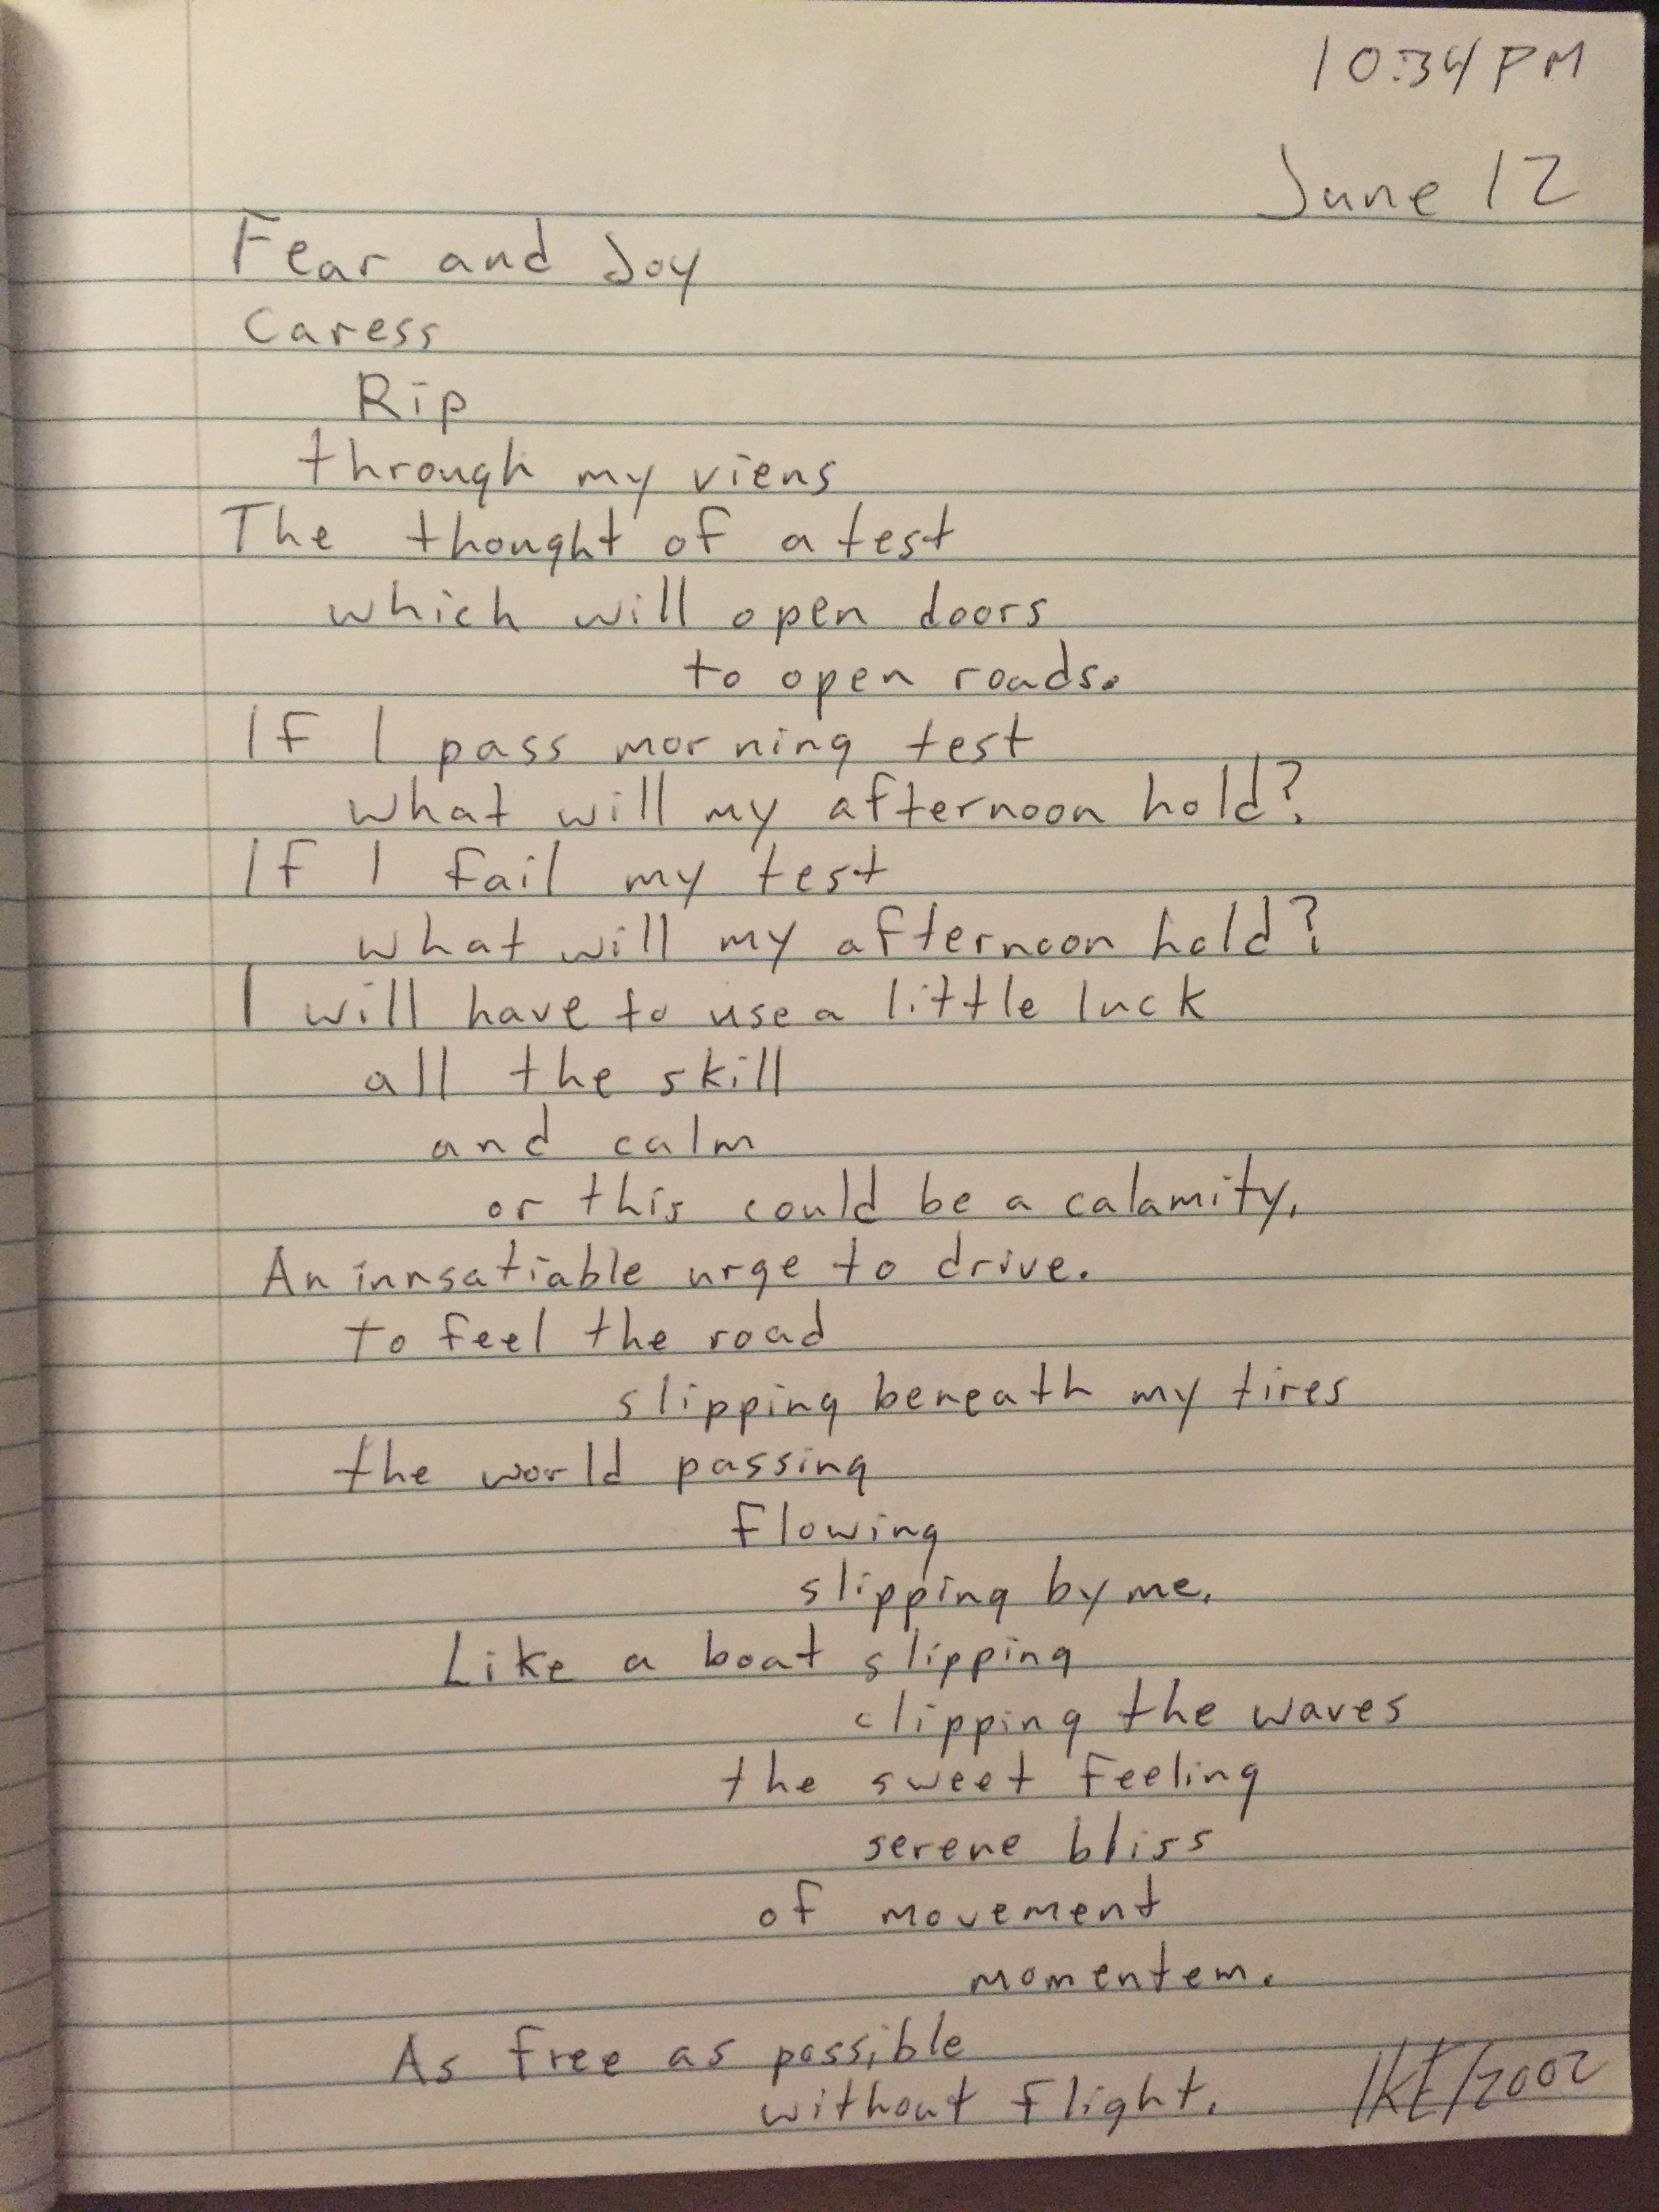 10:34 PM
June 12
Fear and Joy
Caress
Rip
through my viens
The thought of a test
which will open doors
to open roads.
If I pass morning test
what will my afternoon hold?
If I fail my test
what will my afternoon hold?
I will have to use a little luck
all the skill
and calm
or this could be a calamity.
An innsatiable urge to drive.
To feel the road
slipping beneath my tires
the world passing
flowing
slipping by me.
Like a boat slipping
clipping the waves
the sweet feeling
serene bliss
of movement
momentem.
As free as possible
without flight.
IKE/2002